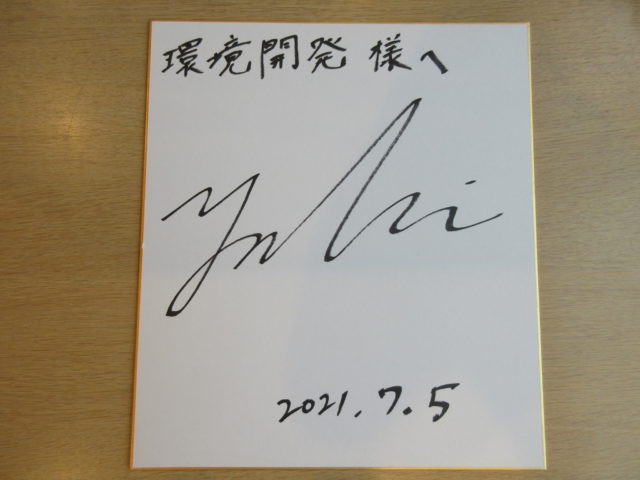 環境開発 様へ
Yuki
2021.7.5